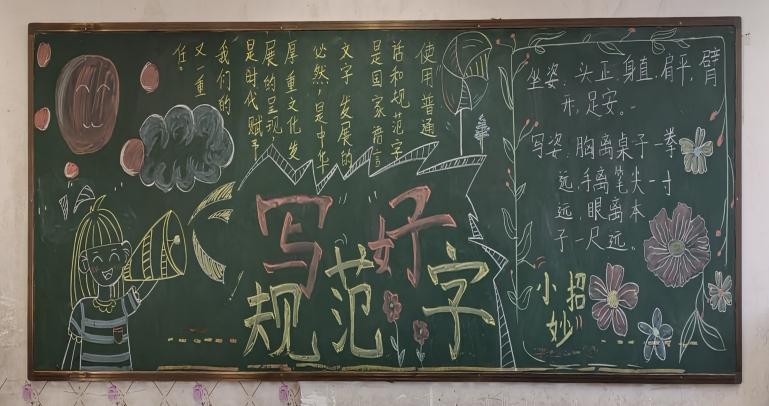 使用普通
话和规范字
是国家语言
文字发展的
必然,是中华
厚重文化发
展的呈现,
是时代赋予
我们的
又一重
任。
写好
规范字
坐姿:头正,身直,肩平,臂
开,足安。
写姿:胸离桌子一拳
远,手离笔尖一寸
远,眼离本
子一尺远。
小妙招